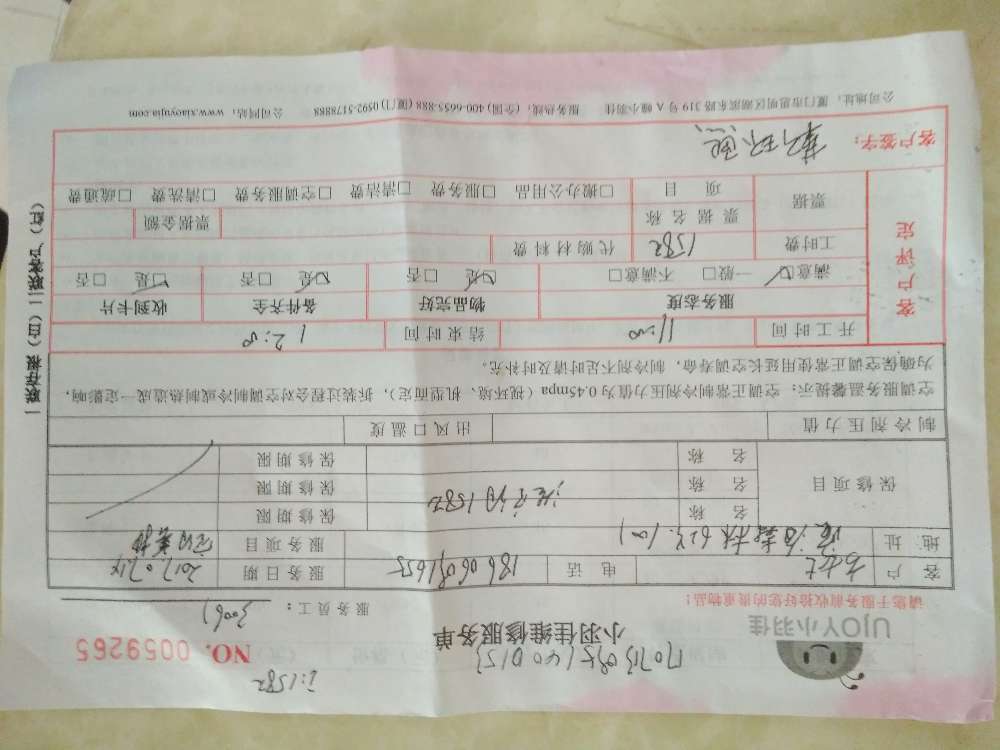 i:1582
NO. 0059265
UJOY小羽佳
小羽佳维修服务单
请您于服务前收拾好您的贵重物品!
服务员工:
客户 电话 服务日期
地址 服务项目
保修项目 名称 保修期限
名称 1582 保修期限
名称 保修期限
制冷剂压力值 出风口温度
空调服务温馨提示:空调正常制冷剂压力值为0.45mpa(视环境、机型而定),拆装过程会对空调制冷或制热造成一定影响,
为确保空调正常使用延长空调寿命,制冷剂不足时请及时补充。
客户评定
开工时间 11:00 结束时间 12:00
服务态度 物品完好 备件齐全 收到卡片
满意□ 一般□ 不满意□ 是□ 否□ 是□ 否□ 是□ 否□
工时费 1582 代购材料费
票据 票据名称 票据金额
项目 □搬办公用品 □服务费 □清洁费 □空调服务费 □清洗费 □疏通费
客户签字:
公司地址:厦门市思明区湖滨东路319号A幢小羽佳 服务热线:(全国)400-6655-888 (厦门)0592-5178888 公司网站:www.xiaoyujia.com
一联存根(白)二联客户(红)